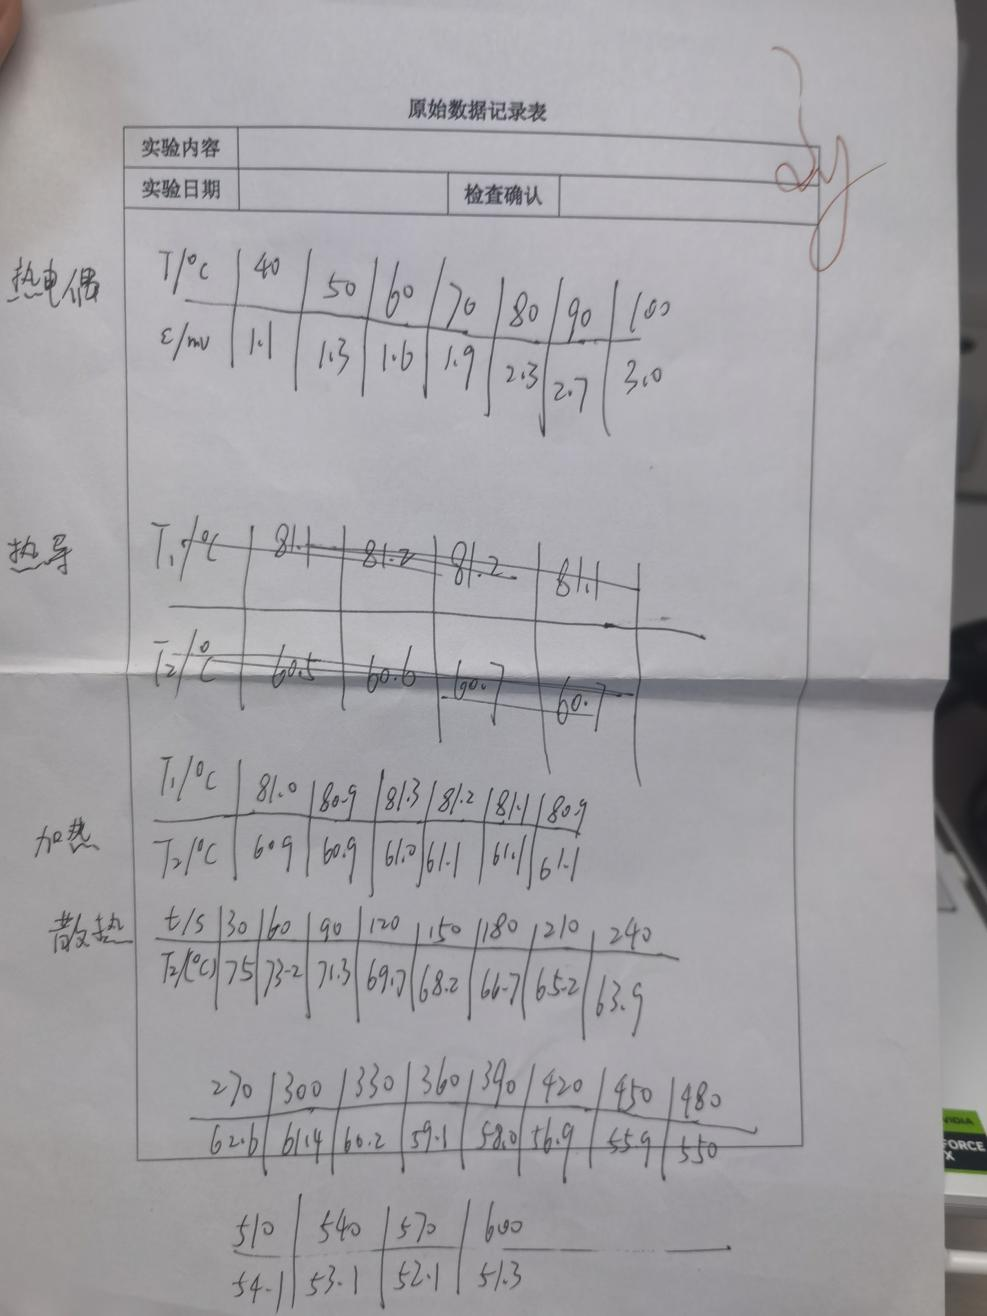 原始数据记录表
实验内容
实验日期 检查确认
热电偶 T/°C 40 50 60 70 80 90 100
ε/mv 1.1 1.3 1.6 1.9 2.3 2.7 3.0
热导 T₁/°C 81.1 81.2 81.2 81.1
T₂/°C 60.5 60.6 60.7 60.7
T₁/°C 81.0 80.9 81.3 81.2 81.1 80.9
加热 T₂/°C 60.9 60.9 61.0 61.1 61.1 61.1
散热 t/s 30 60 90 120 150 180 210 240
T₂/(°C) 75 73.2 71.3 69.7 68.2 66.7 65.2 63.9
270 300 330 360 390 420 450 480
62.6 61.4 60.2 59.1 58.0 56.9 55.9 550
510 540 570 600
54.1 53.1 52.1 51.3